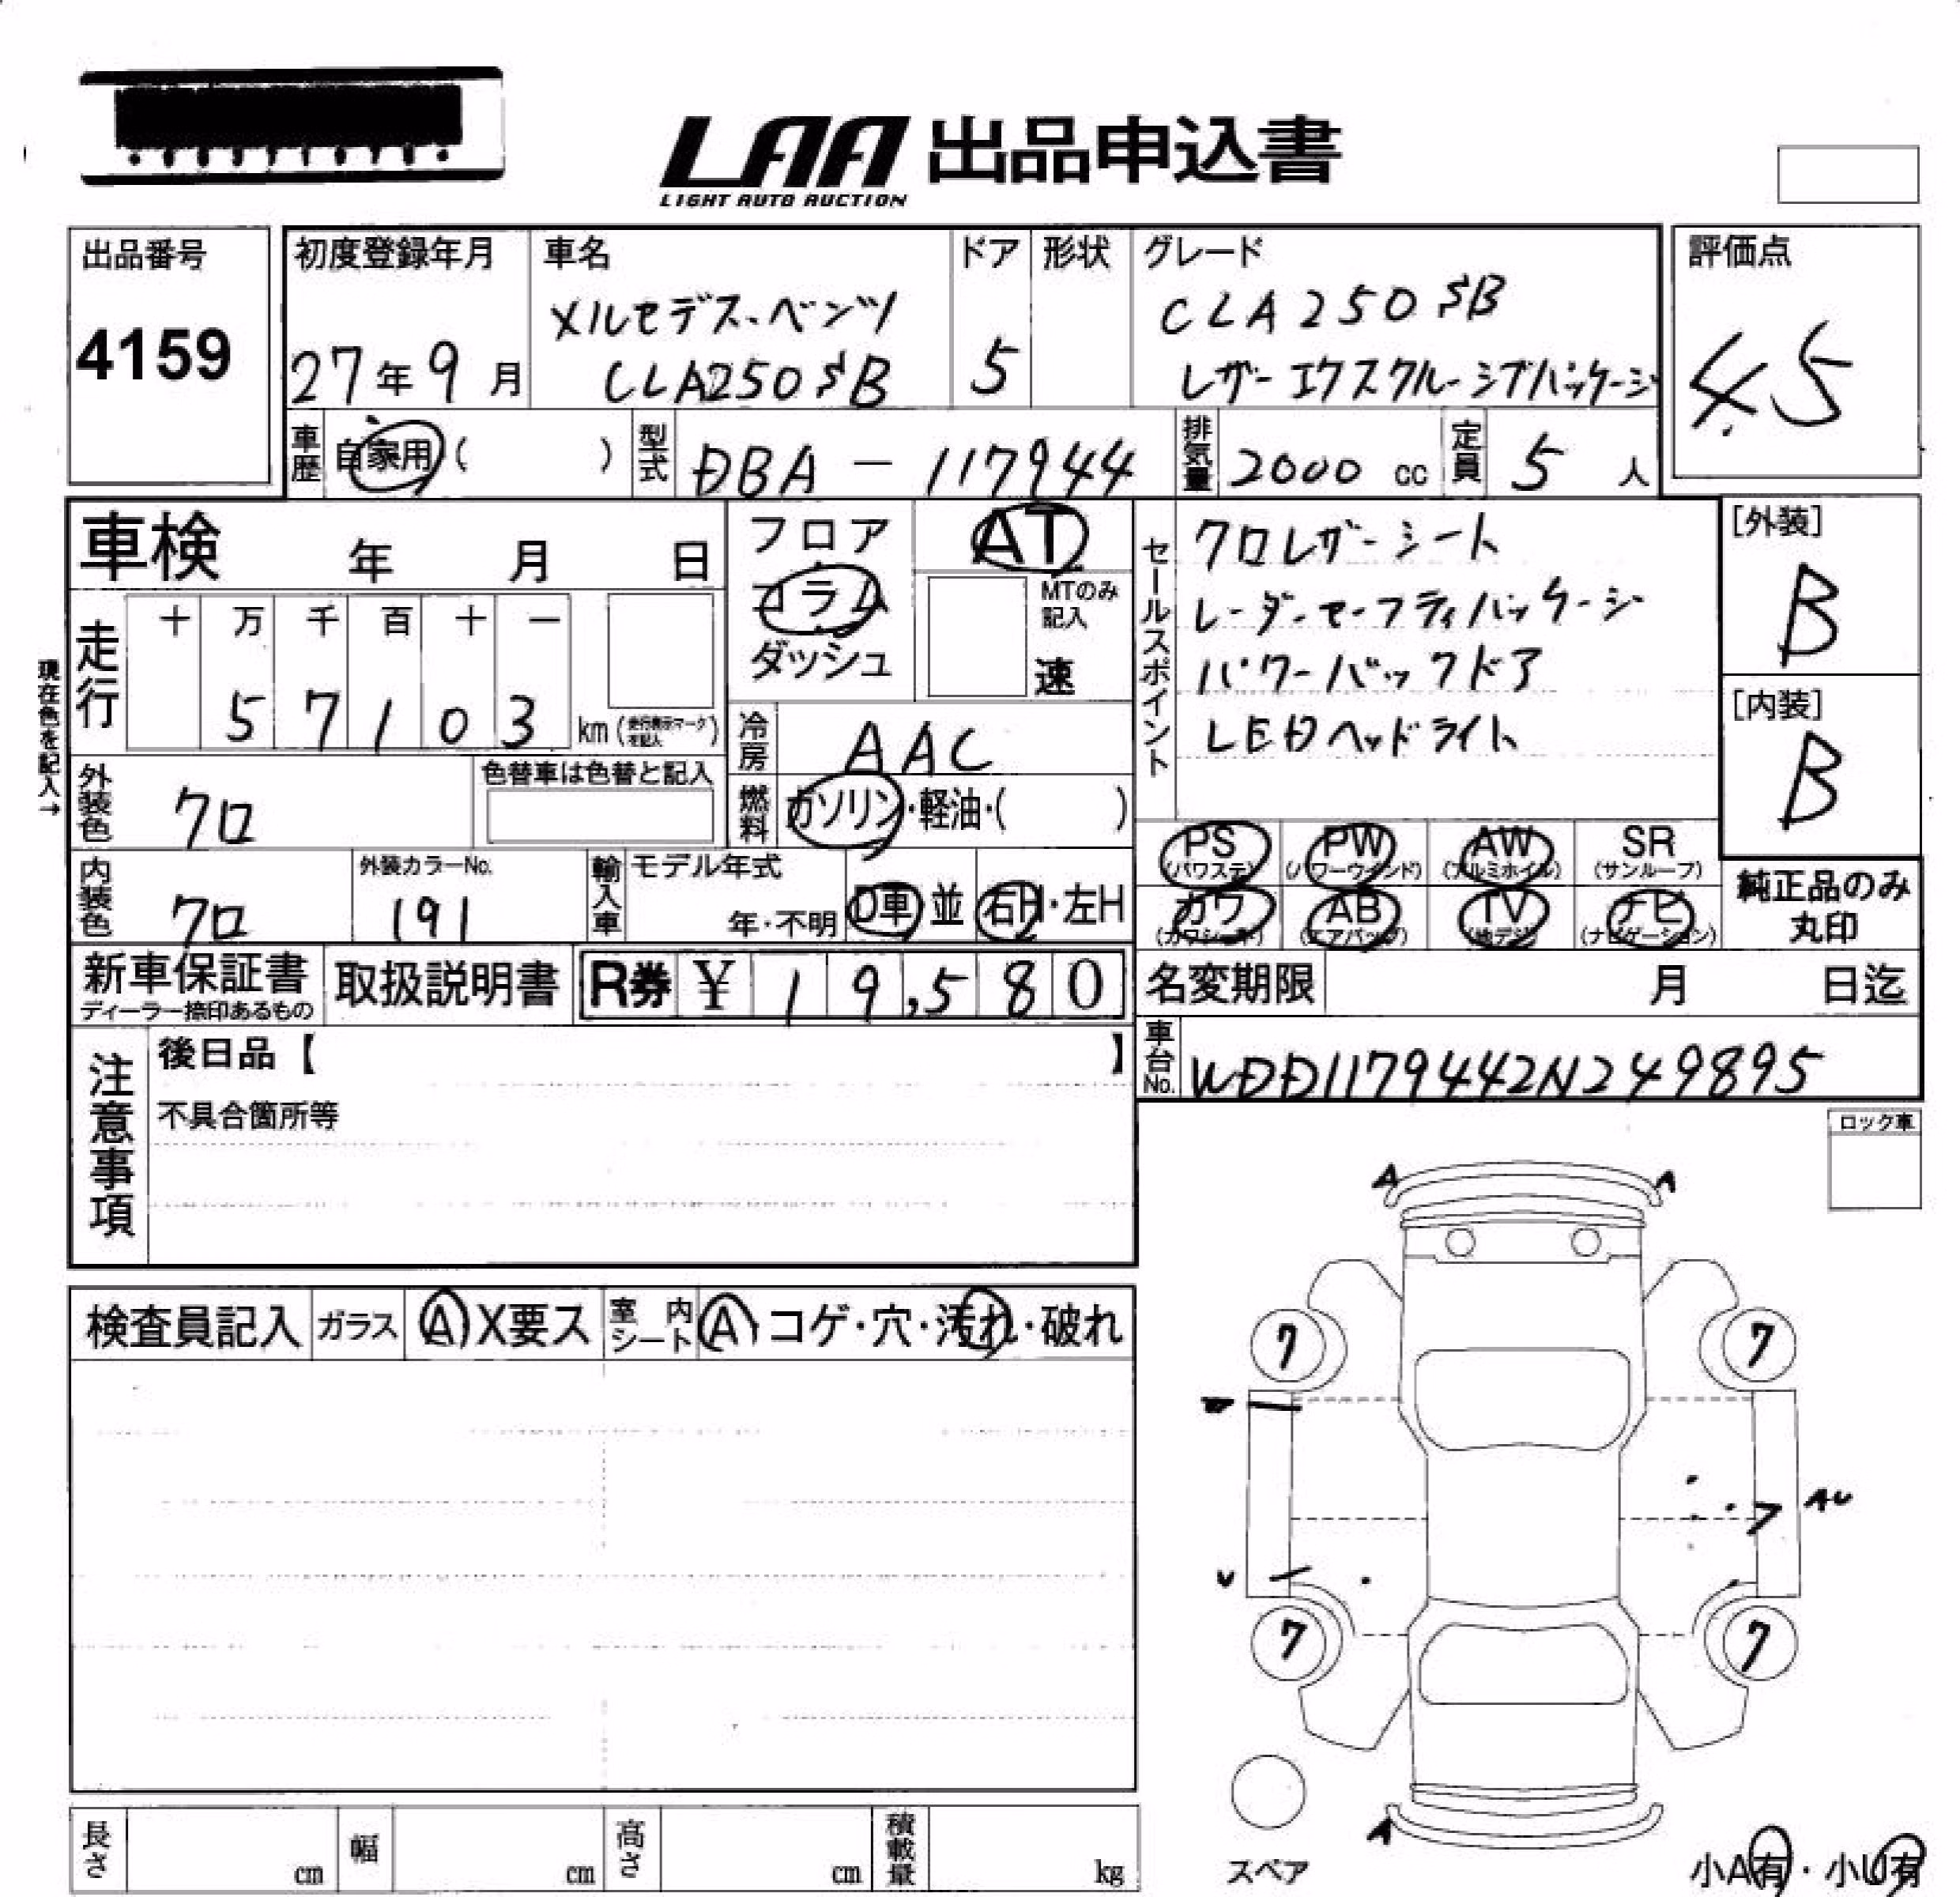 LAA 出品申込書
LIGHT AUTO AUCTION
出品番号
4159
初度登録年月
27年9月
車名
メルセデス・ベンツ
CLA250 SB
ドア
5
形状
グレード
CLA250 SB
レザーエクスクルーシブパッケージ
評価点
4.5
車歴
自家用 ( )
型式
DBA-117944
排気量
2000 cc
定員
5 人
車検 年 月 日
現在色を記入→
走行
十 万 千 百 十 一
5 7 1 0 3
km (走行表示マークを記入)
フロア
コラム
ダッシュ
AT
MTのみ
記入
速
セールスポイント
クロレザーシート
レーダーセーフティパッケージ
パワーバックドア
LEDヘッドライト
[外装]
B
[内装]
B
冷房
AAC
燃料
ガソリン・軽油・( )
外装色
クロ
色替車は色替と記入
内装色
クロ
外装カラーNo.
191
輸入車
モデル年式
年・不明
D車 並
右H・左H
PS
(パワステ)
PW
(パワーウインド)
AW
(アルミホイル)
SR
(サンルーフ)
カワ
(カワシート)
AB
(エアバッグ)
TV
(地デジ)
ナビ
(ナビゲーション)
純正品のみ
丸印
新車保証書
ディーラー捺印あるもの
取扱説明書
R券 ¥ 19,580
名変期限 月 日迄
車台No.
WDD1179442N249895
注意事項
後日品【 】
不具合箇所等
ロック車
検査員記入
ガラス
A X要ス
室内
シート
A コゲ・穴・汚れ・破れ
A A
7 7
AU
U
7 7
A
スペア
小A有・小U有
長さ cm
幅 cm
高さ cm
積載量 kg